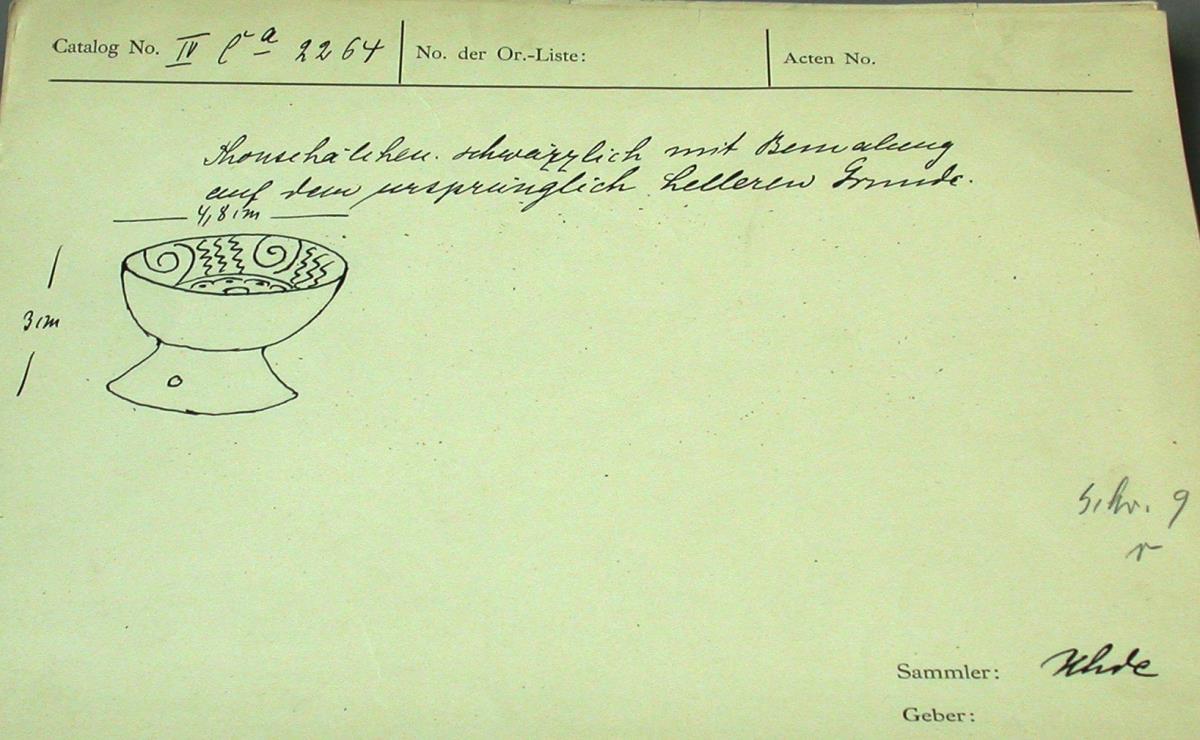 Catalog No. IV Ca 2264 No. der Or.-Liste: Acten No.
Thonschälchen. schwärzlich mit Bemalung
auf dem ursprünglich helleren Grunde.
4,8 cm
3 cm
Schr. 9
r
Sammler: Uhde
Geber: